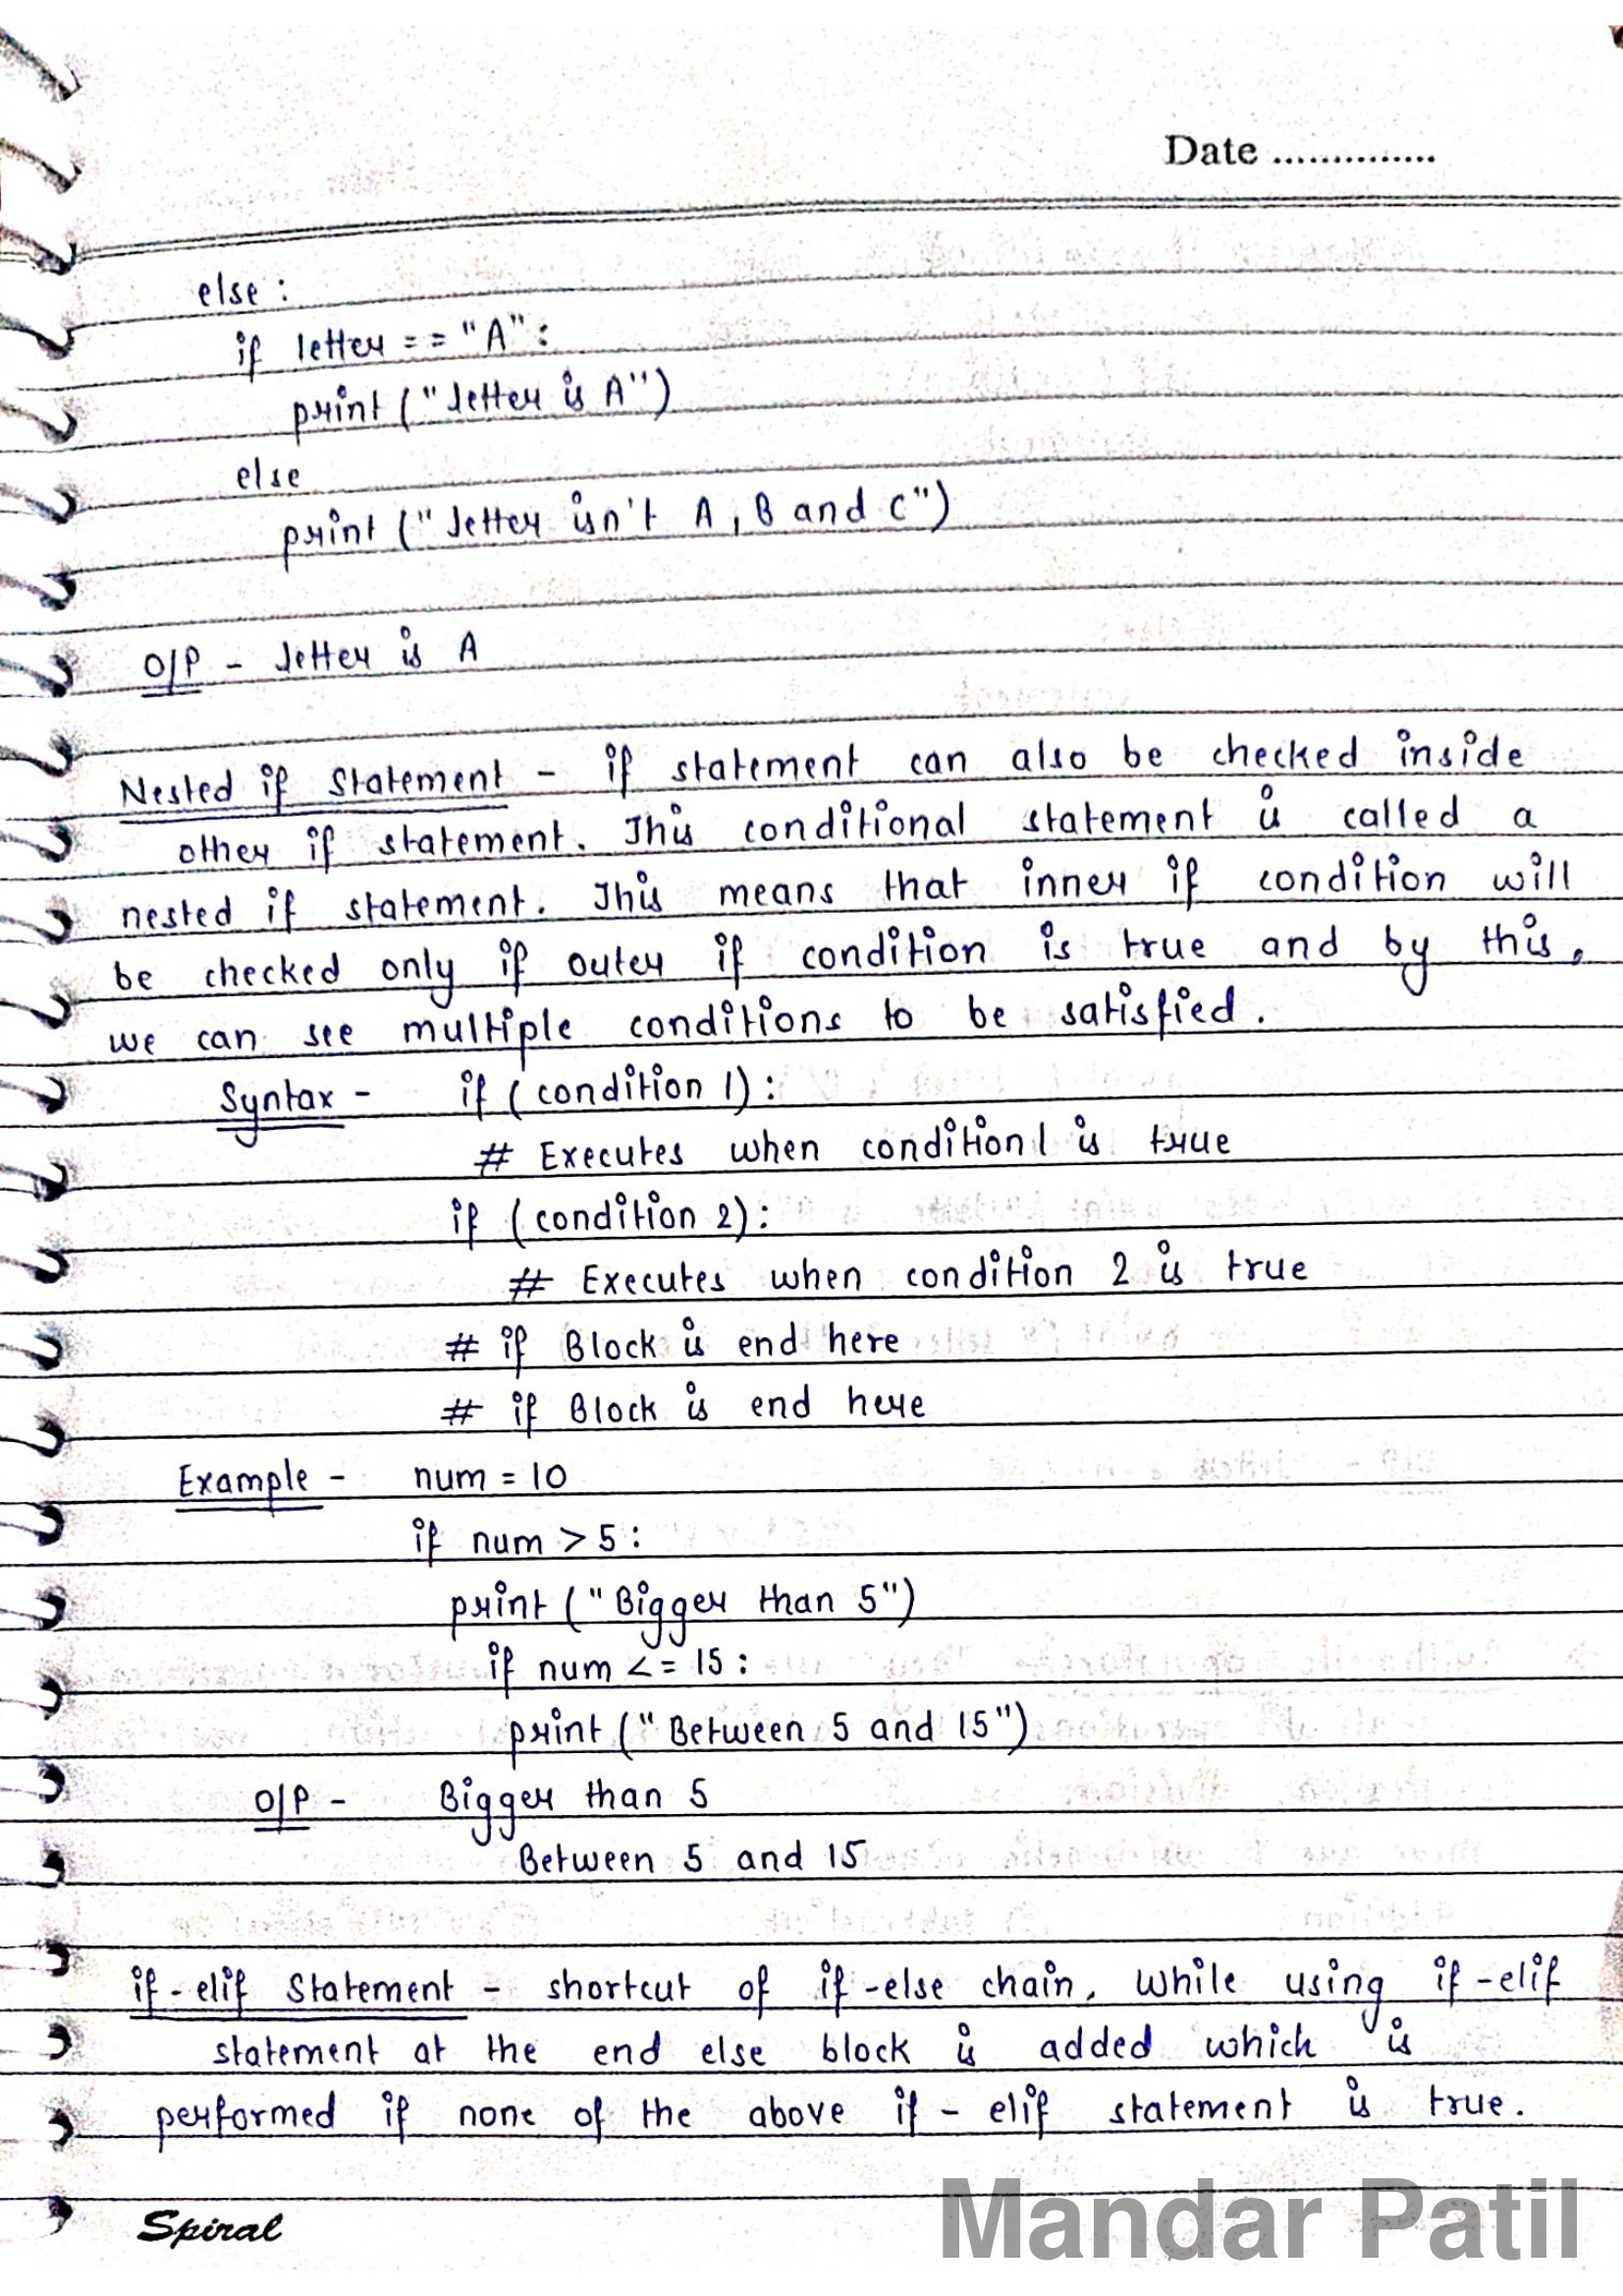 Date ..............
else :
if letter == "A":
print ("letter is A")
else
print ("letter isn't A, B and C")
O/P - letter is A
Nested if Statement - if statement can also be checked inside
other if statement. This conditional statement is called a
nested if statement. This means that inner if condition will
be checked only if outer if condition is true and by this,
we can see multiple conditions to be satisfied.
Syntax - if ( condition 1) :
# Executes when condition 1 is true
if ( condition 2) :
# Executes when condition 2 is true
# if Block is end here
# if Block is end here
Example - num = 10
if num > 5 :
print ("Bigger than 5")
if num <= 15 :
print ("Between 5 and 15")
O/P - Bigger than 5
Between 5 and 15
if - elif Statement - shortcut of if -else chain, while using if -elif
statement at the end else block is added which is
performed if none of the above if - elif statement is true.
Spiral
Mandar Patil